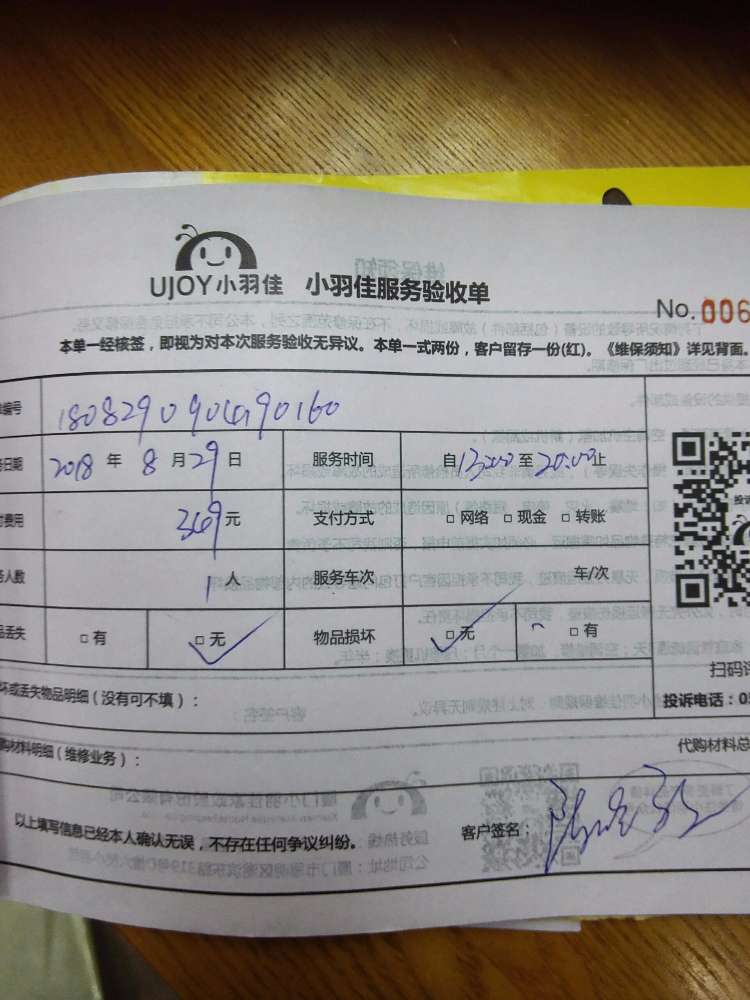 UJOY小羽佳 小羽佳服务验收单
No.006
本单一经核签，即视为对本次服务验收无异议。本单一式两份，客户留存一份(红)。《维保须知》详见背面。
编号
日期 2018 年 8 月 29 日 服务时间 自 13:00 至 20:00 止
费用 369 元 支付方式 □ 网络 □ 现金 □ 转账
人数 1 人 服务车次 车/次
丢失 □ 有 □ 无 物品损坏 □ 无 □ 有
扫码
坏或丢失物品明细（没有可不填）：
投诉电话：0
购材料明细（维修业务）：
代购材料总
以上填写信息已经本人确认无误，不存在任何争议纠纷。
客户签名：